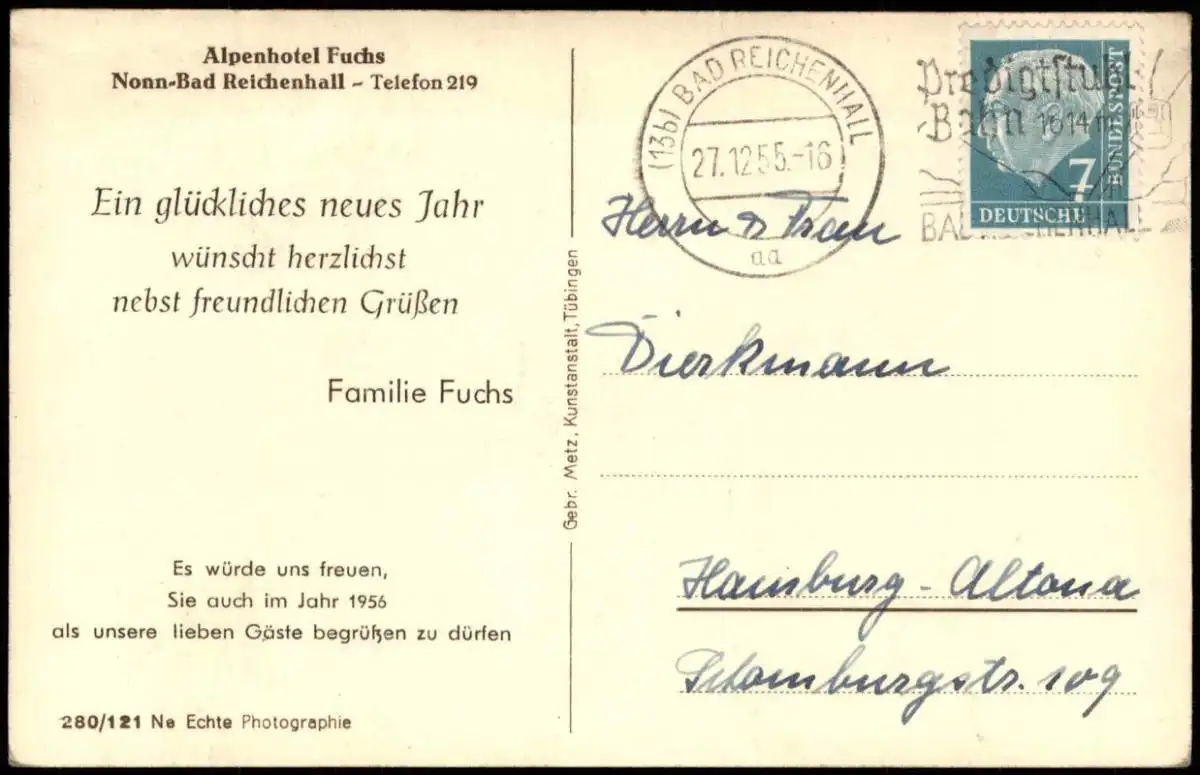 Alpenhotel Fuchs
Nonn-Bad Reichenhall - Telefon 219
Ein glückliches neues Jahr
wünscht herzlichst
nebst freundlichen Grüßen
Familie Fuchs
Es würde uns freuen,
Sie auch im Jahr 1956
als unsere lieben Gäste begrüßen zu dürfen
280/121 Ne Echte Photographie
Gebr. Metz, Kunstanstalt, Tübingen
(13b) BAD REICHENHALL
27.12.55.-16
aa
Predigtstuhl
Bahn 1614m
BAD REICHENHALL
7
DEUTSCHE
BUNDESPOST
Herrn & Frau
Dierkmann
Hamburg-Altona
Schomburgstr. 109